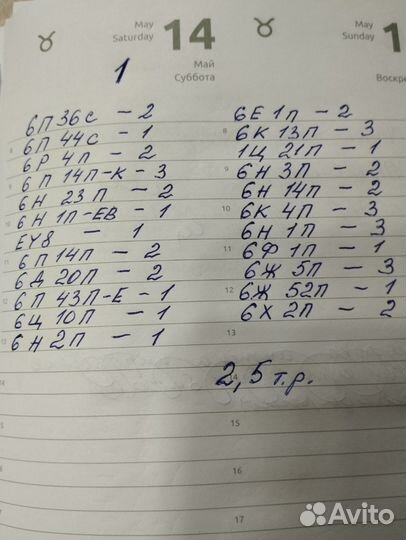 May
Saturday
14
Май
Суббота
1
6П36С – 2
6П 44С – 1
6Р 4П – 2
6П 14П-К – 3
6Н 23П – 2
6Н 1П-ЕВ – 1
EY8 – 1
6П14П – 2
6Д 20П – 2
6П 43П-Е – 1
6Ц 10П – 1
6Н2П – 1
May
Sunday
1
6Е 1П – 2
6К 13П – 3
1Ц 21П – 1
6Н 3П – 2
6Н 14П – 2
6К 4П – 3
6Н 1П – 3
6Ф 1П – 1
6Ж 5П – 3
6Ж 52П – 1
6Х 2П – 2
2,5 т.р.
8
9
10
11
12
13
14
15
16
17
Avito